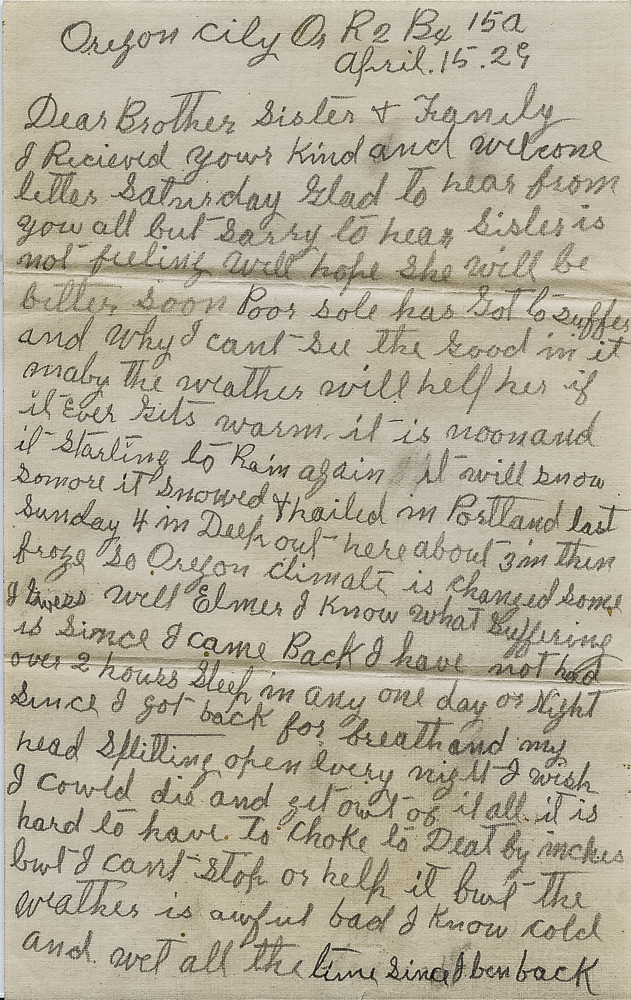 Oregon City Or R2 Bx 15a
April. 15. 29
Dear Brother Sister & Family
I Recieved your Kind and welcome
letter Saturday Glad to hear from
you all but Sorry to hear Sister is
not feeling well hope She will be
better soon Poor sole has Got to suffer
and why I cant see the Good in it
maby the weather will help her if
it Ever Gits warm. it is noon and
it Starting to Rain again it will snow
somore it snowed & hailed in Portland last
Sunday 4 in Deep out here about 3 in then
froze so Oregon climate is changed some
I Guess well Elmer I Know what Suffering
is Since I came Back I have not had
over 2 hours Sleep in any one day or Night
since I got back for breath and my
head Splitting open Every night I wish
I could die and get out of it all. it is
hard to have to choke to Deat by inches
but I cant Stop or help it but the
weather is awful bad I Know cold
and wet all the time since I ben back